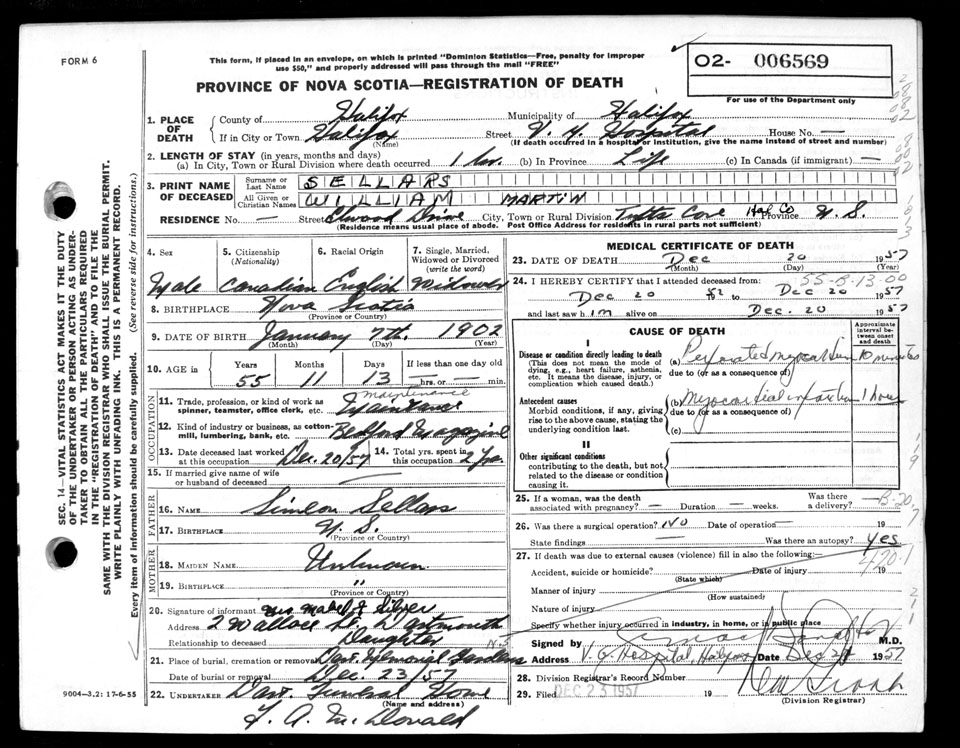 FORM 6
This form, if placed in an envelope, on which is printed "Dominion Statistics—Free, penalty for improper
use $50," and properly addressed will pass through the mail "FREE"
O2- 006569
For use of the Department only
PROVINCE OF NOVA SCOTIA—REGISTRATION OF DEATH
1. PLACE OF DEATH
County of Halifax Municipality of Halifax
If in City or Town Halifax (Name) Street V. G. Hospital House No. —
(If death occurred in a hospital or institution, give the name instead of street and number)
2. LENGTH OF STAY (in years, months and days)
(a) In City, Town or Rural Division where death occurred 1 hr. (b) In Province Life (c) In Canada (if immigrant) —
3. PRINT NAME OF DECEASED
Surname or Last Name SELLARS
All Given or Christian Names WILLIAM MARTIN
RESIDENCE No. — Street Elwood Drive City, Town or Rural Division Tufts Cove Hal Co Province N. S.
(Residence means usual place of abode. Post Office Address for residents in rural parts not sufficient)
4. Sex Male
5. Citizenship (Nationality) Canadian
6. Racial Origin English
7. Single, Married, Widowed or Divorced (write the word) Widower
8. BIRTHPLACE Nova Scotia
(Province or Country)
9. DATE OF BIRTH January 7th. 1902
(Month) (Day) (Year)
10. AGE in Years 55 Months 11 Days 13 If less than one day old — hrs. or — min.
OCCUPATION
11. Trade, profession, or kind of work as spinner, teamster, office clerk, etc. Maintenance
12. Kind of industry or business, as cotton-mill, lumbering, bank, etc. Bedford Magazine
13. Date deceased last worked at this occupation Dec. 20/57
14. Total yrs. spent in this occupation 2 Yrs.
15. If married give name of wife or husband of deceased —
FATHER
16. NAME Simeon Sellars
17. BIRTHPLACE N. S.
(Province or Country)
MOTHER
18. MAIDEN NAME Unknown
19. BIRTHPLACE "
(Province or Country)
20. Signature of informant Mrs Mabel J Silver
Address 2 Wallace St. Dartmouth N.S
Relationship to deceased Daughter
21. Place of burial, cremation or removal Dart. Memorial Gardens
Date of burial or removal Dec. 23/57
22. UNDERTAKER Dart. Funeral Home
(Name and address)
F. A. McDonald
9004-3.2: 17-6-55
MEDICAL CERTIFICATE OF DEATH
23. DATE OF DEATH Dec 20 1957
(Month) (Day) (Year)
55-B-13-00
24. I HEREBY CERTIFY that I attended deceased from:
Dec 20 57 to Dec 20 1957
and last saw him alive on Dec. 20 1957
CAUSE OF DEATH
Approximate interval between onset and death
I
Disease or condition directly leading to death
(This does not mean the mode of dying, e.g., heart failure, asthenia, etc. It means the disease, injury, or complication which caused death.)
(a) Perforated myocardium 10 minutes
due to (or as a consequence of)
Antecedent causes
Morbid conditions, if any, giving rise to the above cause, stating the underlying condition last.
(b) Myocardial infarction 1 hour
due to (or as a consequence of)
(c)
II
Other significant conditions
contributing to the death, but not related to the disease or condition causing it.
25. If a woman, was the death associated with pregnancy? — Duration — weeks. Was there a delivery? —
26. Was there a surgical operation? No Date of operation — 19
State findings — Was there an autopsy? Yes
27. If death was due to external causes (violence) fill in also the following:
420-1
Accident, suicide or homicide? Date of injury 19
(State which)
Manner of injury
(How sustained)
Nature of injury
Specify whether injury occurred in industry, in home, or in public place
Signed by M.D.
Address V. G. Hospital, Halifax Date Dec 1957
28. Division Registrar's Record Number
29. Filed DEC 23 1957 19
(Division Registrar)
SEC. 14—VITAL STATISTICS ACT MAKES IT THE DUTY
OF THE UNDERTAKER OR PERSON ACTING AS UNDER-
TAKER TO OBTAIN ALL THE PARTICULARS REQUIRED
IN THE "REGISTRATION OF DEATH" AND TO FILE THE
SAME WITH THE DIVISION REGISTRAR WHO SHALL ISSUE THE BURIAL PERMIT.
WRITE PLAINLY WITH UNFADING INK. THIS IS A PERMANENT RECORD.
Every item of information should be carefully supplied. (See reverse side for instructions.)